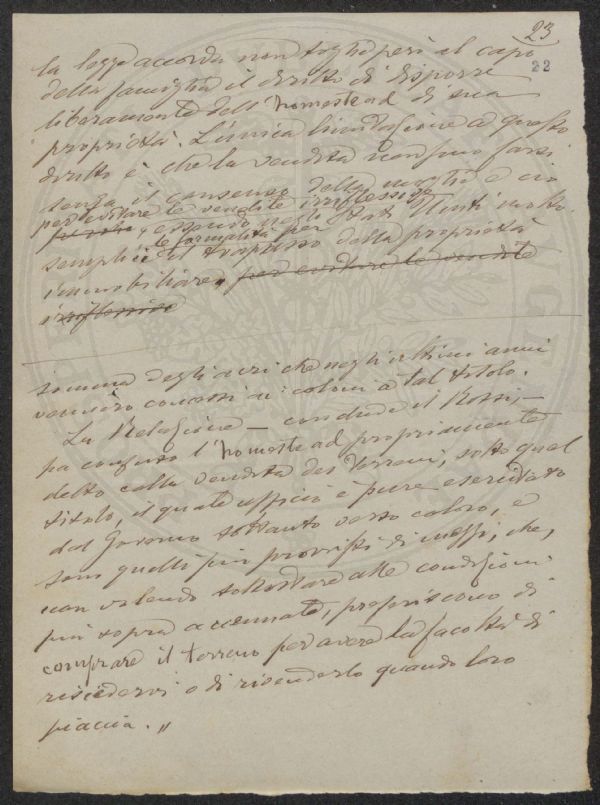 23
22
la legge accorda non toglie però al capo
della famiglia il diritto di disporre
liberamente dell'homestead di sua
proprietà. L'unica limitazione a questo
diritto è che la vendita non può farsi
senza il consenso della moglie e ciò
per evitare le vendite irriflessive
essendo negli Stati Uniti molto
le formalità per
semplici il trapasso della proprietà
immobiliare, per evitare le vendite
irriflessive
somma degli acri che negli ultimi anni
vennero concessi ai coloni a tal titolo.
La Relazione — conclude il Rossi, —
ha confuso l'homestead propriamente
detto colla vendita dei terreni, sotto qual
titolo, il quale ufficio è pure esercitato
dal Governo soltanto verso coloro, e
sono quelli più provvisti di mezzi, che,
non volendo sottostare alle condizioni
più sopra accennate, preferiscono di
comprare il terreno per avere la facoltà di
risiedervi o di rivenderlo quando loro
piaccia. „